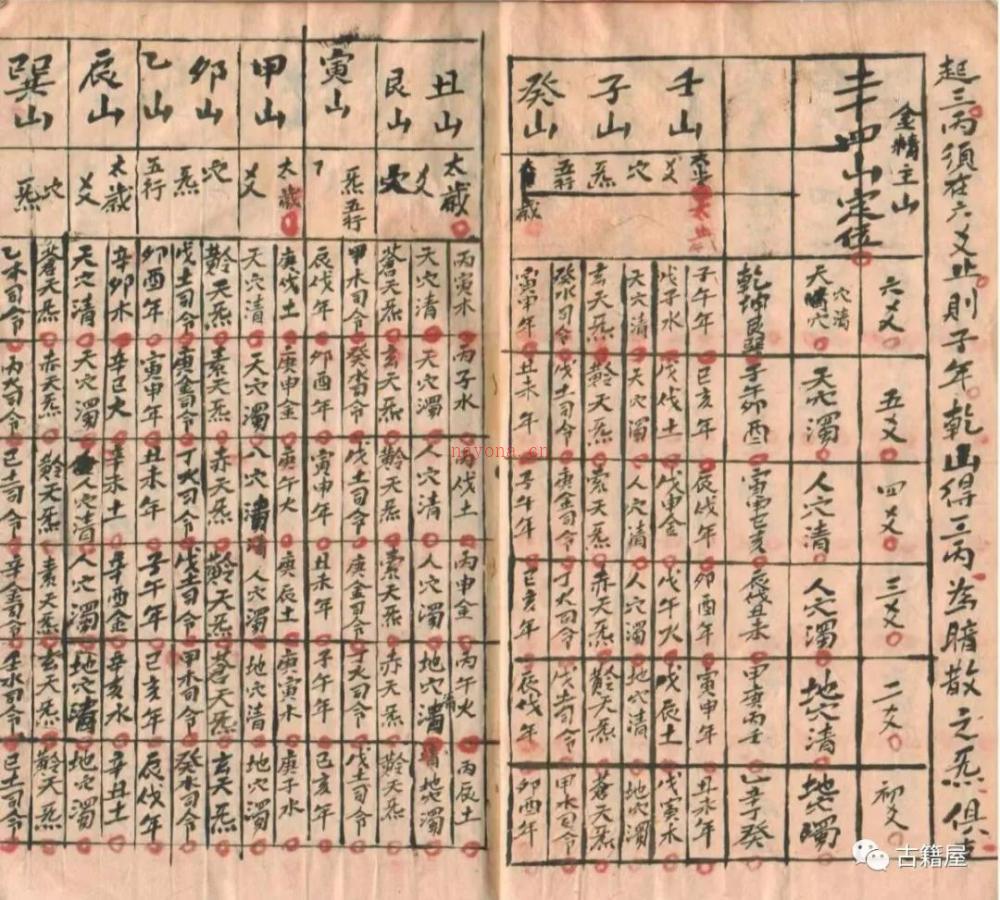 起三丙須在六爻止則子年乾山得三丙為暗散之炁俱
金精主山
四山定位
六爻
五爻
四爻
三爻
二爻
初爻
天穴濁
人穴清
人穴濁
地穴清
地穴濁
乾坤艮巽
子午卯酉
寅申巳亥
辰戌丑未
甲庚丙壬
乙辛丁癸
壬山
子山
癸山
太歲
爻
穴
炁
五行
子午年
巳亥年
辰伐年
卯酉年
寅申年
丑未年
戊子水
戊伐土
戊申金
戊午火
戊辰土
戊寅木
天穴清
天穴濁
人穴清
人穴濁
地穴清
地穴濁
玄天炁
黅天炁
素天炁
赤天炁
黅天炁
蒼天炁
癸水司令
戊土司令
庚金司令
丁火司令
戊土司令
甲木司令
寅申年
丑未年
子午年
巳亥年
辰伐年
卯酉年
丑山
艮山
寅山
甲山
卯山
乙山
辰山
巽山
太歲
爻
穴
炁五行
太歲
爻
穴
炁
五行
太歲
爻
穴
炁
丙寅木
丙子水
丙伐土
丙申金
丙午火
丙辰土
天穴清
天穴濁
人穴清
人穴濁
地穴清
地穴濁
蒼天炁
玄天炁
黅天炁
素天炁
赤天炁
黅天炁
甲木司令
癸水司令
戊土司令
庚金司令
丁火司令
戊土司令
辰伐年
卯酉年
寅申年
丑未年
子午年
巳亥年
庚伐土
庚申金
庚午火
庚辰土
庚寅木
庚子水
天穴清
天穴濁
人穴濁
地穴清
地穴濁
黅天炁
素天炁
赤天炁
黅天炁
蒼天炁
玄天炁
戊土司令
庚金司令
丁火司令
戊土司令
甲木司令
癸水司令
卯酉年
寅申年
丑未年
子午年
巳亥年
辰伐年
辛卯木
辛巳火
辛未土
辛酉金
辛亥水
辛丑土
天穴清
天穴濁
人穴清
人穴濁
地穴清
地穴濁
蒼天炁
赤天炁
黅天炁
素天炁
玄天炁
黅天炁
乙木司令
丙火司令
己土司令
辛金司令
壬水司令
己土司令
nayona.cn
古籍屋